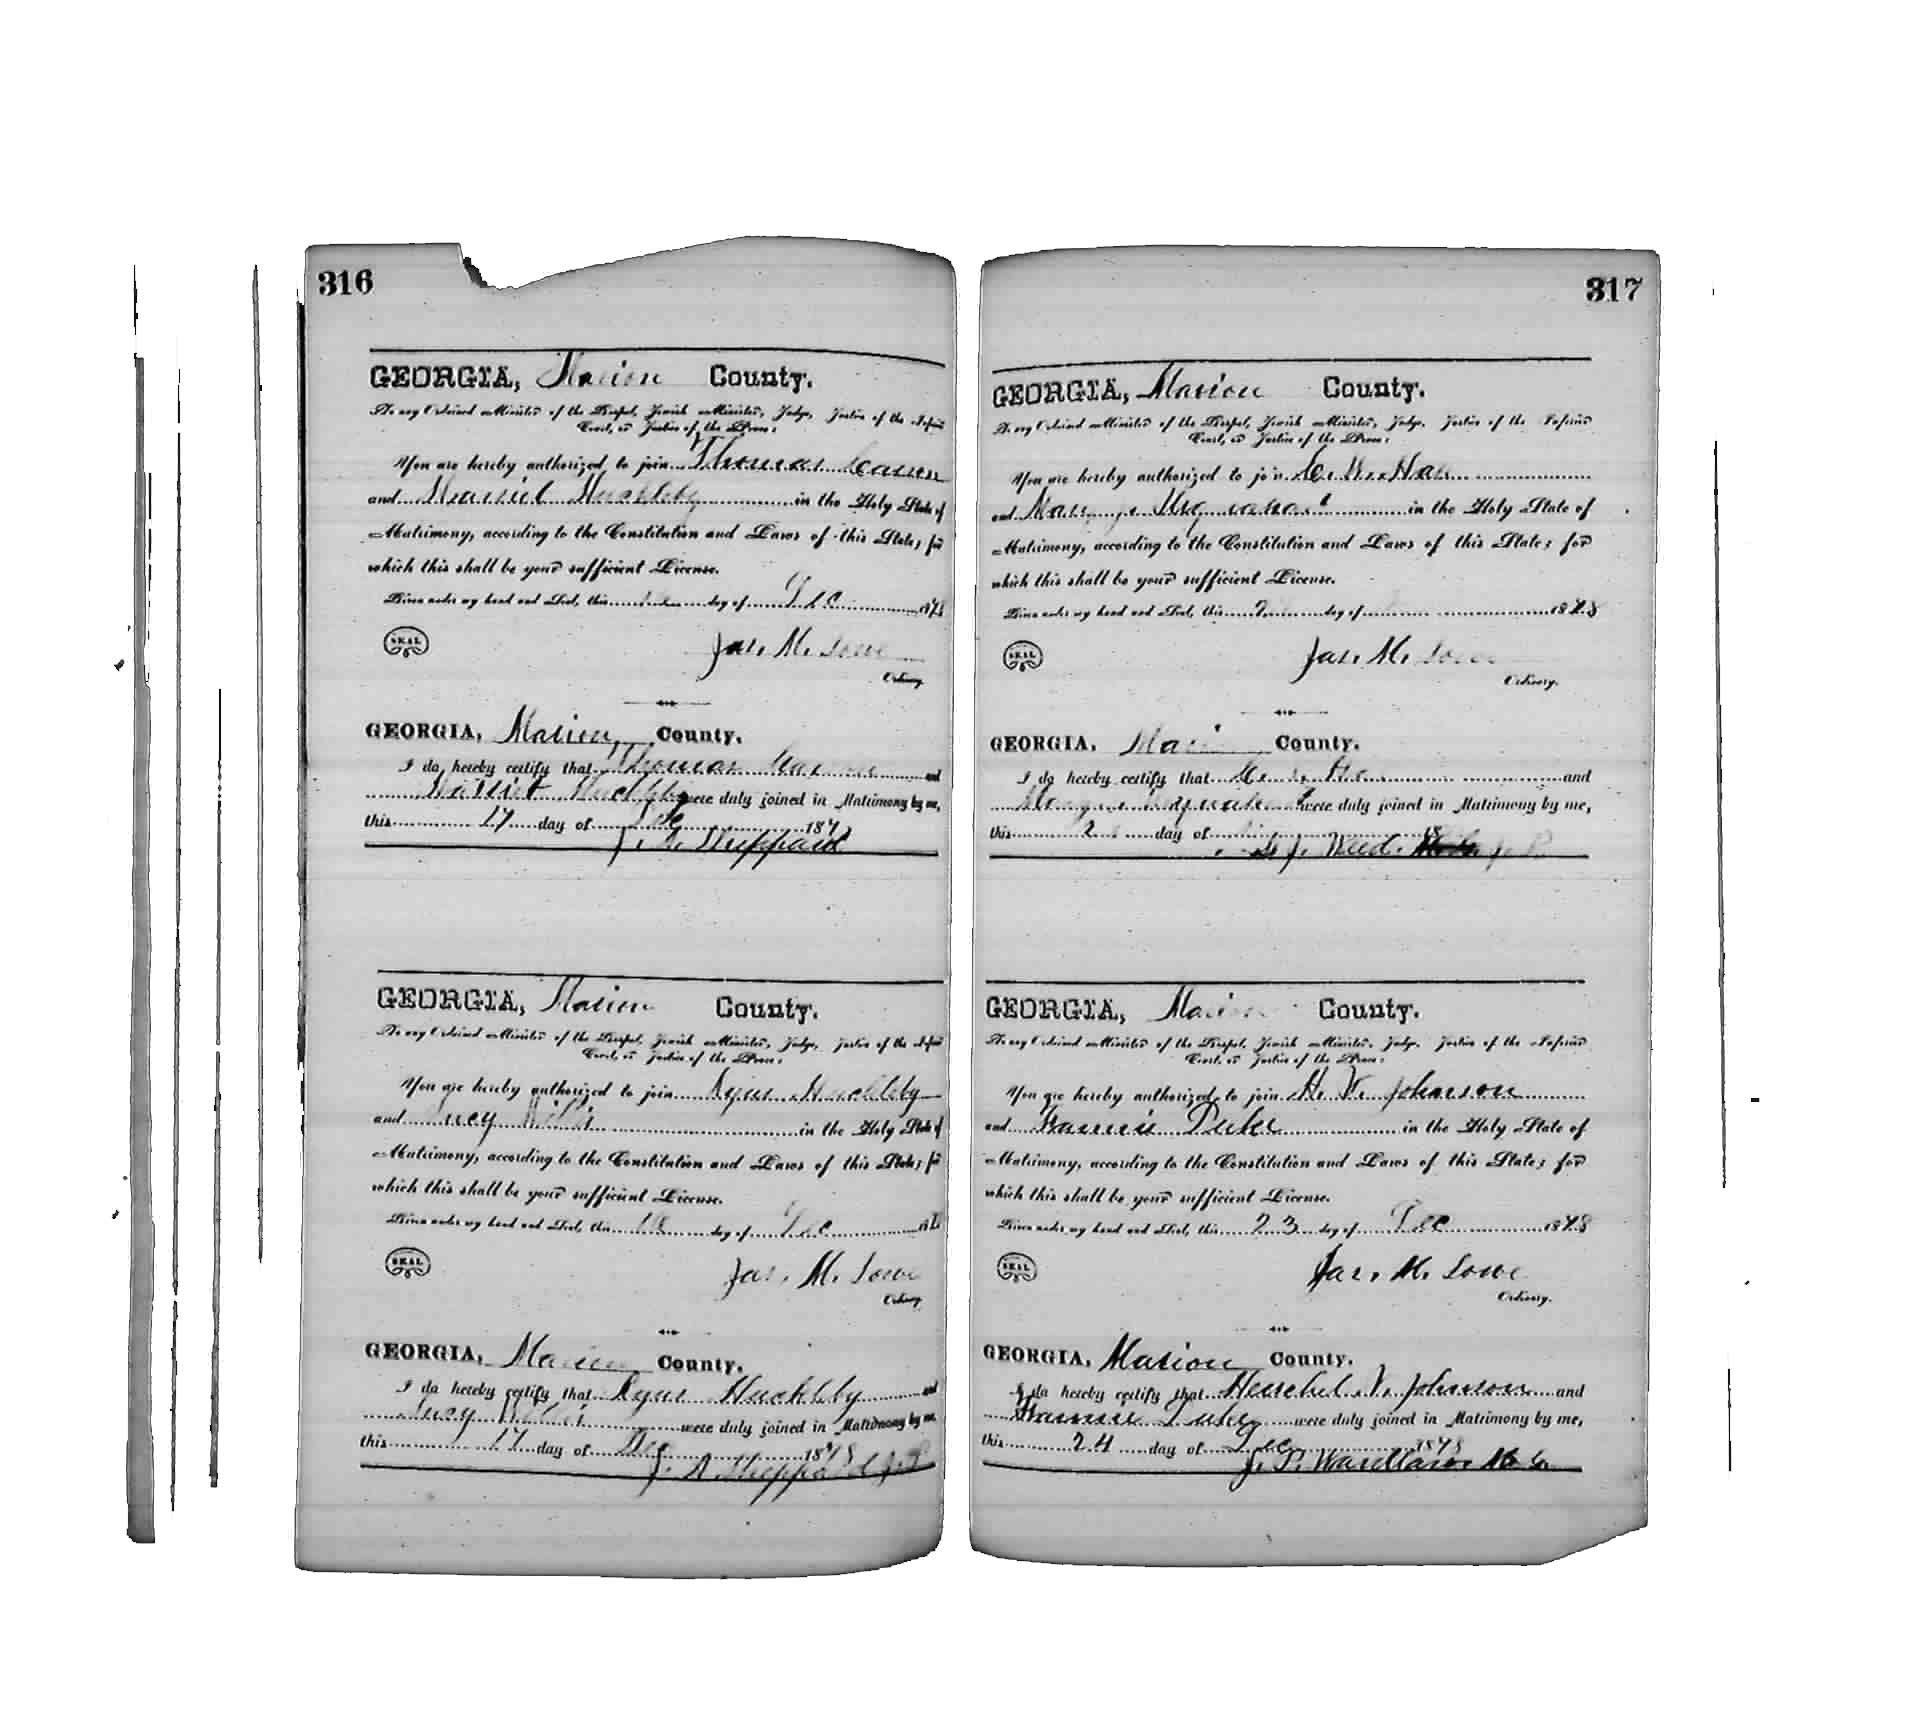 316
GEORGIA, Marion County.
To any Ordained Minister of the Gospel, Jewish Minister, Judge, Justice of the Inferior
Court, or Justice of the Peace:
You are hereby authorized to join Thomas
and Huckleby in the Holy State of
Matrimony, according to the Constitution and Laws of this State; for
which this shall be your sufficient License.
Given under my hand and Seal, this day of Dec 1878
SEAL
Jas. M. Lowe
Ordinary.
GEORGIA, Marion County.
I do hereby certify that Thomas and
Harriet Huckleby were duly joined in Matrimony by me,
this 17 day of Dec 187
Sheppard
GEORGIA, Marion County.
To any Ordained Minister of the Gospel, Jewish Minister, Judge, Justice of the Inferior
Court, or Justice of the Peace:
You are hereby authorized to join Huckleby
and Lucy in the Holy State of
Matrimony, according to the Constitution and Laws of this State; for
which this shall be your sufficient License.
Given under my hand and Seal, this day of Dec 187
SEAL
Jas. M. Lowe
Ordinary.
GEORGIA, Marion County.
I do hereby certify that Huckleby and
Lucy were duly joined in Matrimony by me,
this 17 day of Dec 1878
Sheppard J. P.
317
GEORGIA, Marion County.
To any Ordained Minister of the Gospel, Jewish Minister, Judge, Justice of the Inferior
Court, or Justice of the Peace:
You are hereby authorized to join
and in the Holy State of
Matrimony, according to the Constitution and Laws of this State; for
which this shall be your sufficient License.
Given under my hand and Seal, this day of 1878
SEAL
Jas. M. Lowe
Ordinary.
GEORGIA, County.
I do hereby certify that and
were duly joined in Matrimony by me,
this day of 18
J. P.
GEORGIA, Marion County.
To any Ordained Minister of the Gospel, Jewish Minister, Judge, Justice of the Inferior
Court, or Justice of the Peace:
You are hereby authorized to join H. V. Johnson
and Fannie Duke in the Holy State of
Matrimony, according to the Constitution and Laws of this State; for
which this shall be your sufficient License.
Given under my hand and Seal, this 23 day of Dec 1878
SEAL
Jas. M. Lowe
Ordinary.
GEORGIA, Marion County.
I do hereby certify that Herschel V. Johnson and
Fannie Duke were duly joined in Matrimony by me,
this 24 day of Dec 1878
J. P. Wardlaw M. G.